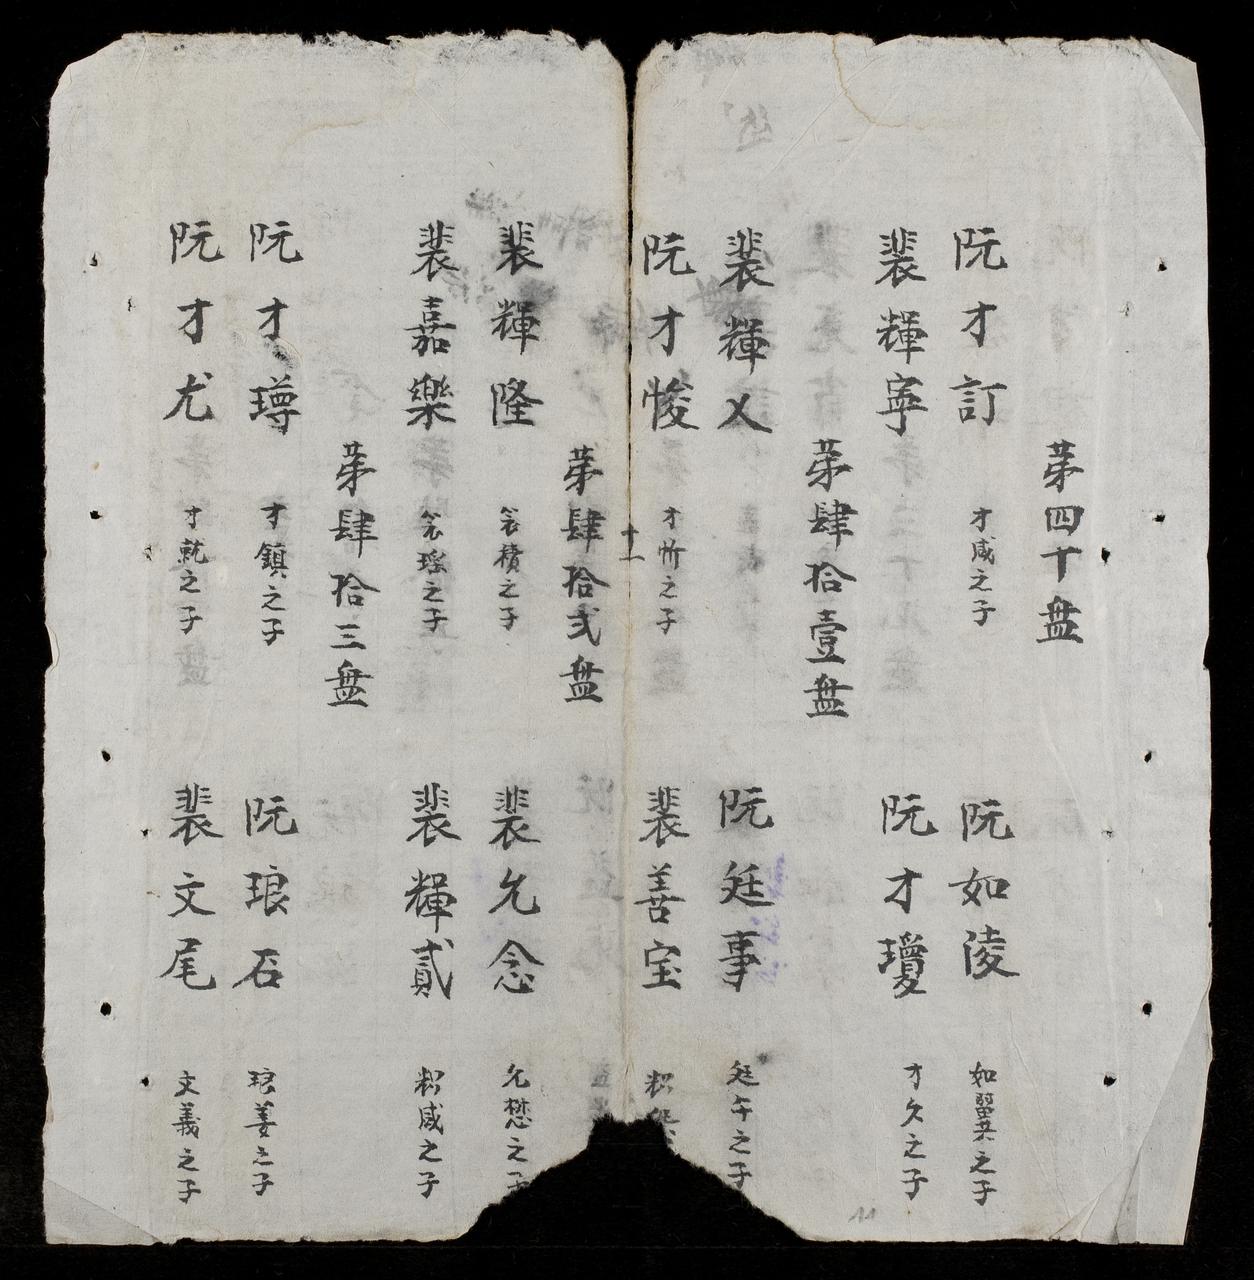 第四十盘
阮才訂 才咸之子
阮如淩 如翼之子
裴輝寧
阮才瓊 才久之子
第肆拾壹盘
裴輝㐅
阮廷事 廷午之子
阮才悛 才忻之子
裴善宝
十一
第肆拾弍盘
裴輝隆
裴允念 允懋之子
裴嘉樂
裴輝貳
第肆拾三盘
阮才璔 才鎮之子
阮琅石 琅姜之子
阮才尤 才就之子
裴文尾 文義之子
11